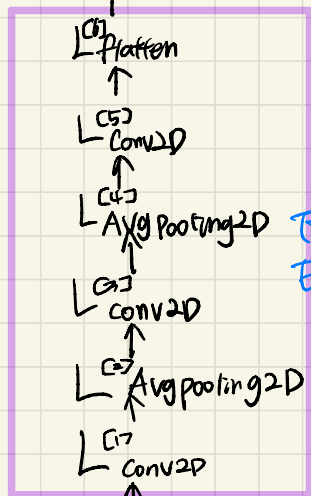 L[6] flatten
L[5] Conv2D
L[4] Avgpooling2D
L[3] conv2D
L[2] Avgpooling2D
L[1] conv2D